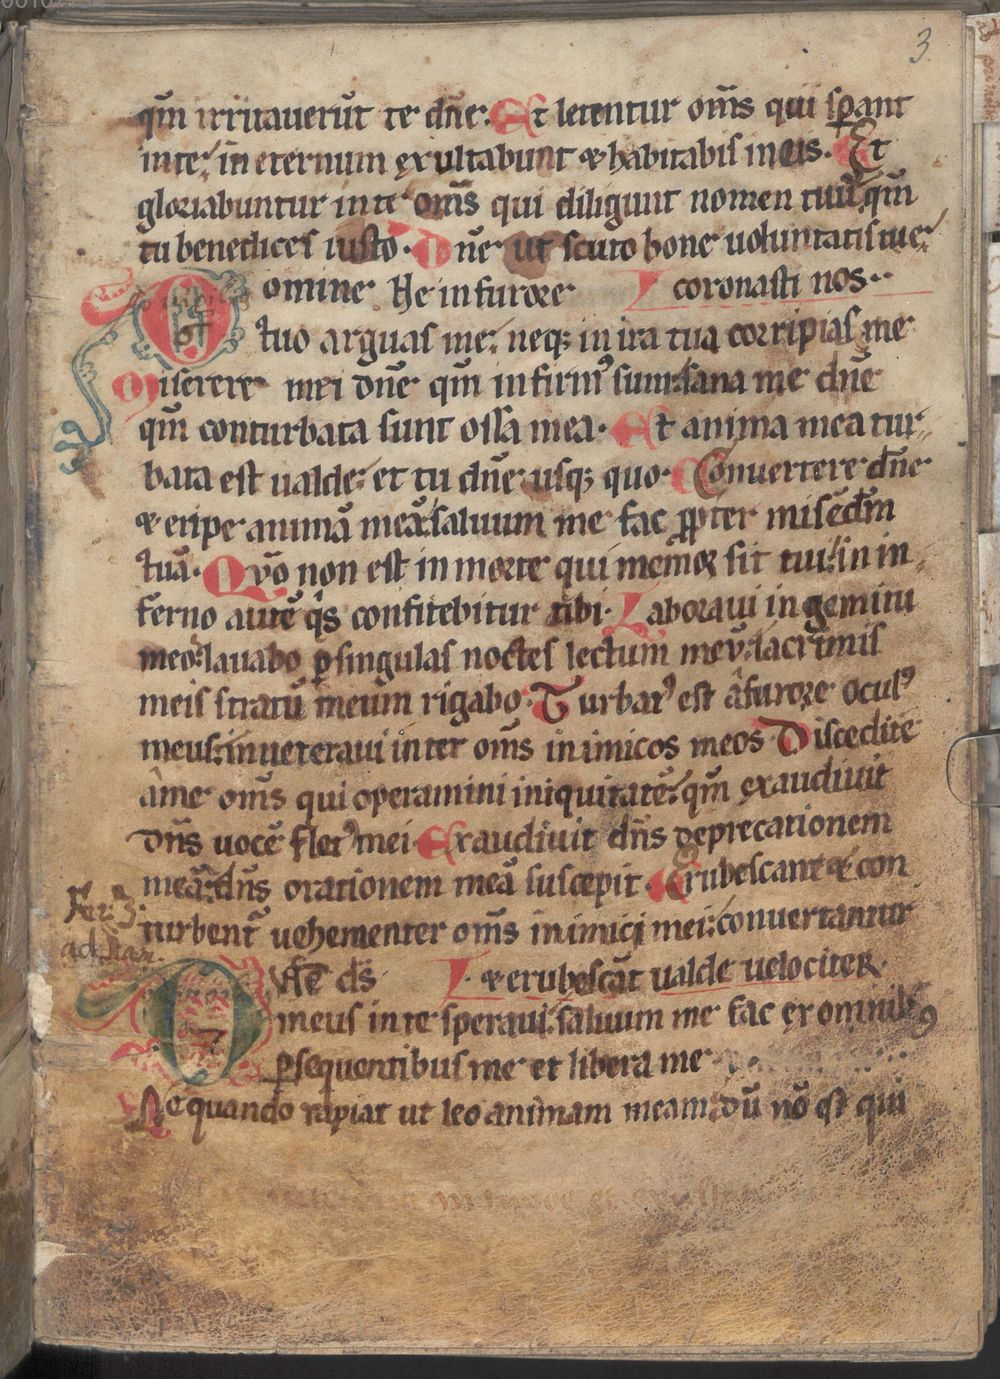 3.
qm̄ irritauerūt te dn̄e. Et letentur om̄s qui sperant
in te. in eternum exultabunt & habitabis in eis. Et
gloriabuntur in te om̄s qui diligunt nomen tuū qm̄
tu benedices iusto. Dn̄e ut scuto bone uoluntatis tue
omine Ne in furore coronasti nos.
tuo arguas me. neq; in ira tua corripias me
Miserere mei dn̄e qm̄ infirmꝰ sum. sana me dn̄e
qm̄ conturbata sunt ossa mea. Et anima mea tur
bata est ualde. et tu dn̄e usq; quo. Conuertere dn̄e
& eripe animā meā. saluum me fac ꝓpter mis̄cdm̄
tuā. Qm̄ non est in morte qui memor sit tui. in in
ferno autē q̄s confitebitur tibi. Laboraui in gemitu
meo. lauabo ꝑ singulas noctes lectum meū. lacrimis
meis stratū meum rigabo. Turbatꝰ est a furore oculꝰ
meus. inueteraui inter om̄s inimicos meos. Discedite
a me om̄s qui operamini iniquitatē. qm̄ exaudiuit
dn̄s uocē fletꝰ mei. Exaudiuit dn̄s deprecationem
meā. dn̄s orationem meā suscepit. Erubescant & con
turbent᷑ uehementer om̄s inimici mei. conuertantur
Dn̄e ds̄ & erubescāt ualde uelociter.
meus in te speraui. saluum me fac ex omnibꝰ
ꝑsequentibus me et libera me
Ne quando rapiat ut leo animam meam. dū nō est qui